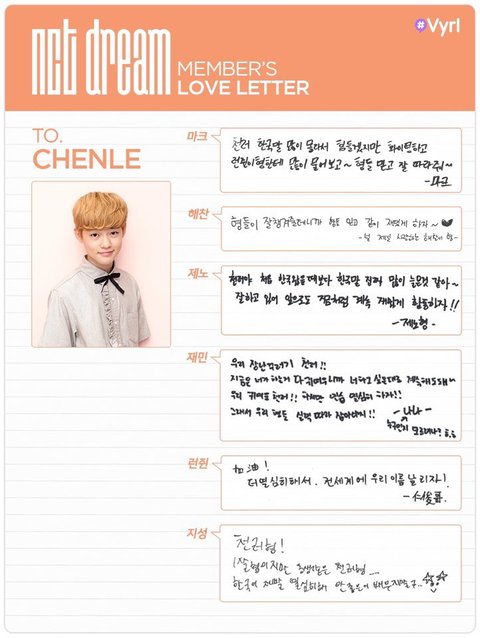 nct dream
MEMBER'S
LOVE LETTER
#Vyrl
TO.
CHENLE
마크
천러 한국말 많이 몰라서 힘들겠지만 화이팅하고
런쥔이형한테 많이 물어보고~ 형들 믿고 잘 따라와~
-마크
해찬
형들이 잘 챙겨줄테니까 형들 믿고 같이 재밌게 하자~ ♥
-널 제일 사랑하는 해찬이 형-
제노
천러야 처음 한국왔을때보다 한국말 실력 많이 늘은것 같아~
잘하고 있어 앞으로도 지금처럼 계속 재밌게 활동하자!!
-제노형-
재민
우리 장난꾸러기 천러!!
지금은 너가 하는게 다 귀여우니까 너 하고 싶은대로 계속해 ssㅐ~
우리 귀여운 천러!! 하지만 연습 열심히 하자!!
그래서 우리 형들 실력 따라 잡아야지!!
-나나-
누구인지 모르려나?
런쥔
加油!
더 열심히 해서. 전세계에 우리 이름 날리자!
지성
천러형!
1살 형이지만 동생같은 천러형...
한국어 제발 열심히해 안 좋은거 배우지말구..